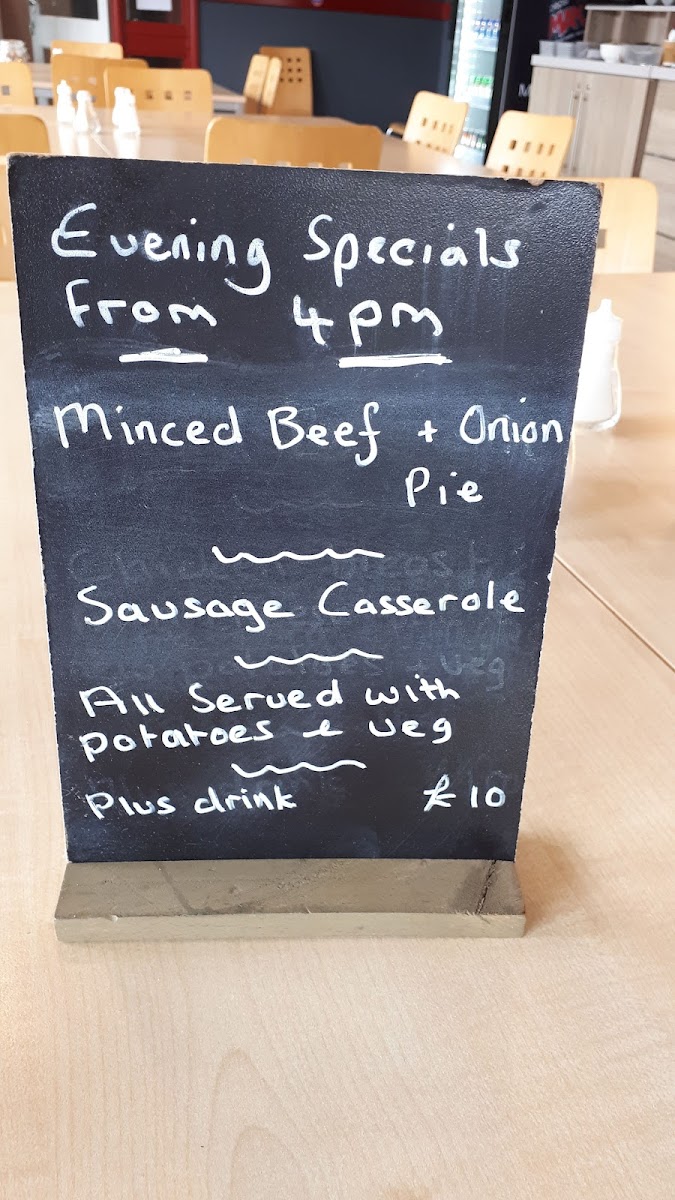 Evening Specials
From 4pm
Minced Beef + Onion
Pie
Sausage Casserole
All Served with
potatoes & veg
Plus drink £10